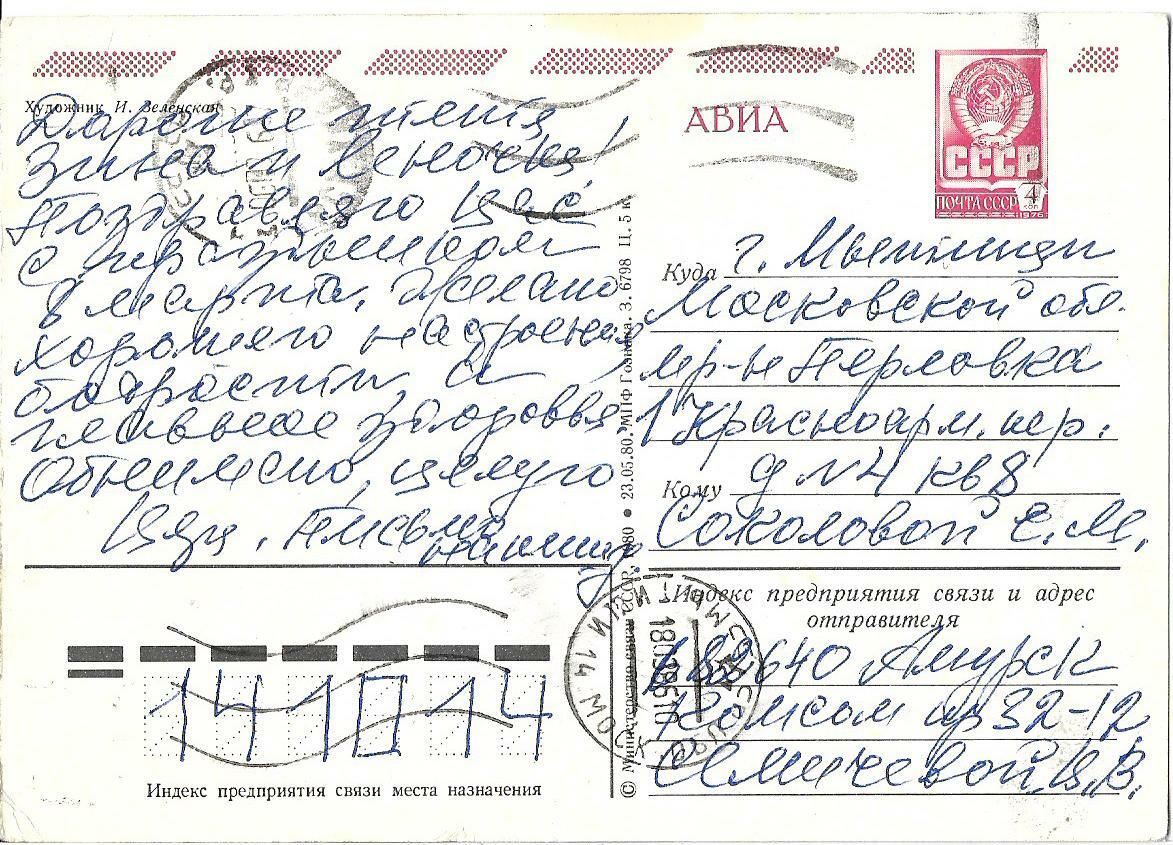 Художник И. Зеленская
Дорогие тётя
Зина и Леночка!
Поздравляю Вас
с праздником
8 марта. Желаю
хорошего настроения
бодрости, и
главное здоровья.
Обнимаю, целую
Письмо
напишу.
АВИА
СССР
ПОЧТА СССР
4
коп
1976
Куда г. Мытищи
Московской обл.
мр-н Перловка
1 Красноарм. пер.
д N 4 кв 8
Кому
Соколовой Е. М.
Индекс предприятия связи и адрес
отправителя
Амурск
Комсом пр 32-12
Семичевой
141014
Индекс предприятия связи места назначения
© Министерство связи СССР, 1980 • 23.05.80. МПФ Гознака. З. 6798 Ц. 5 к.